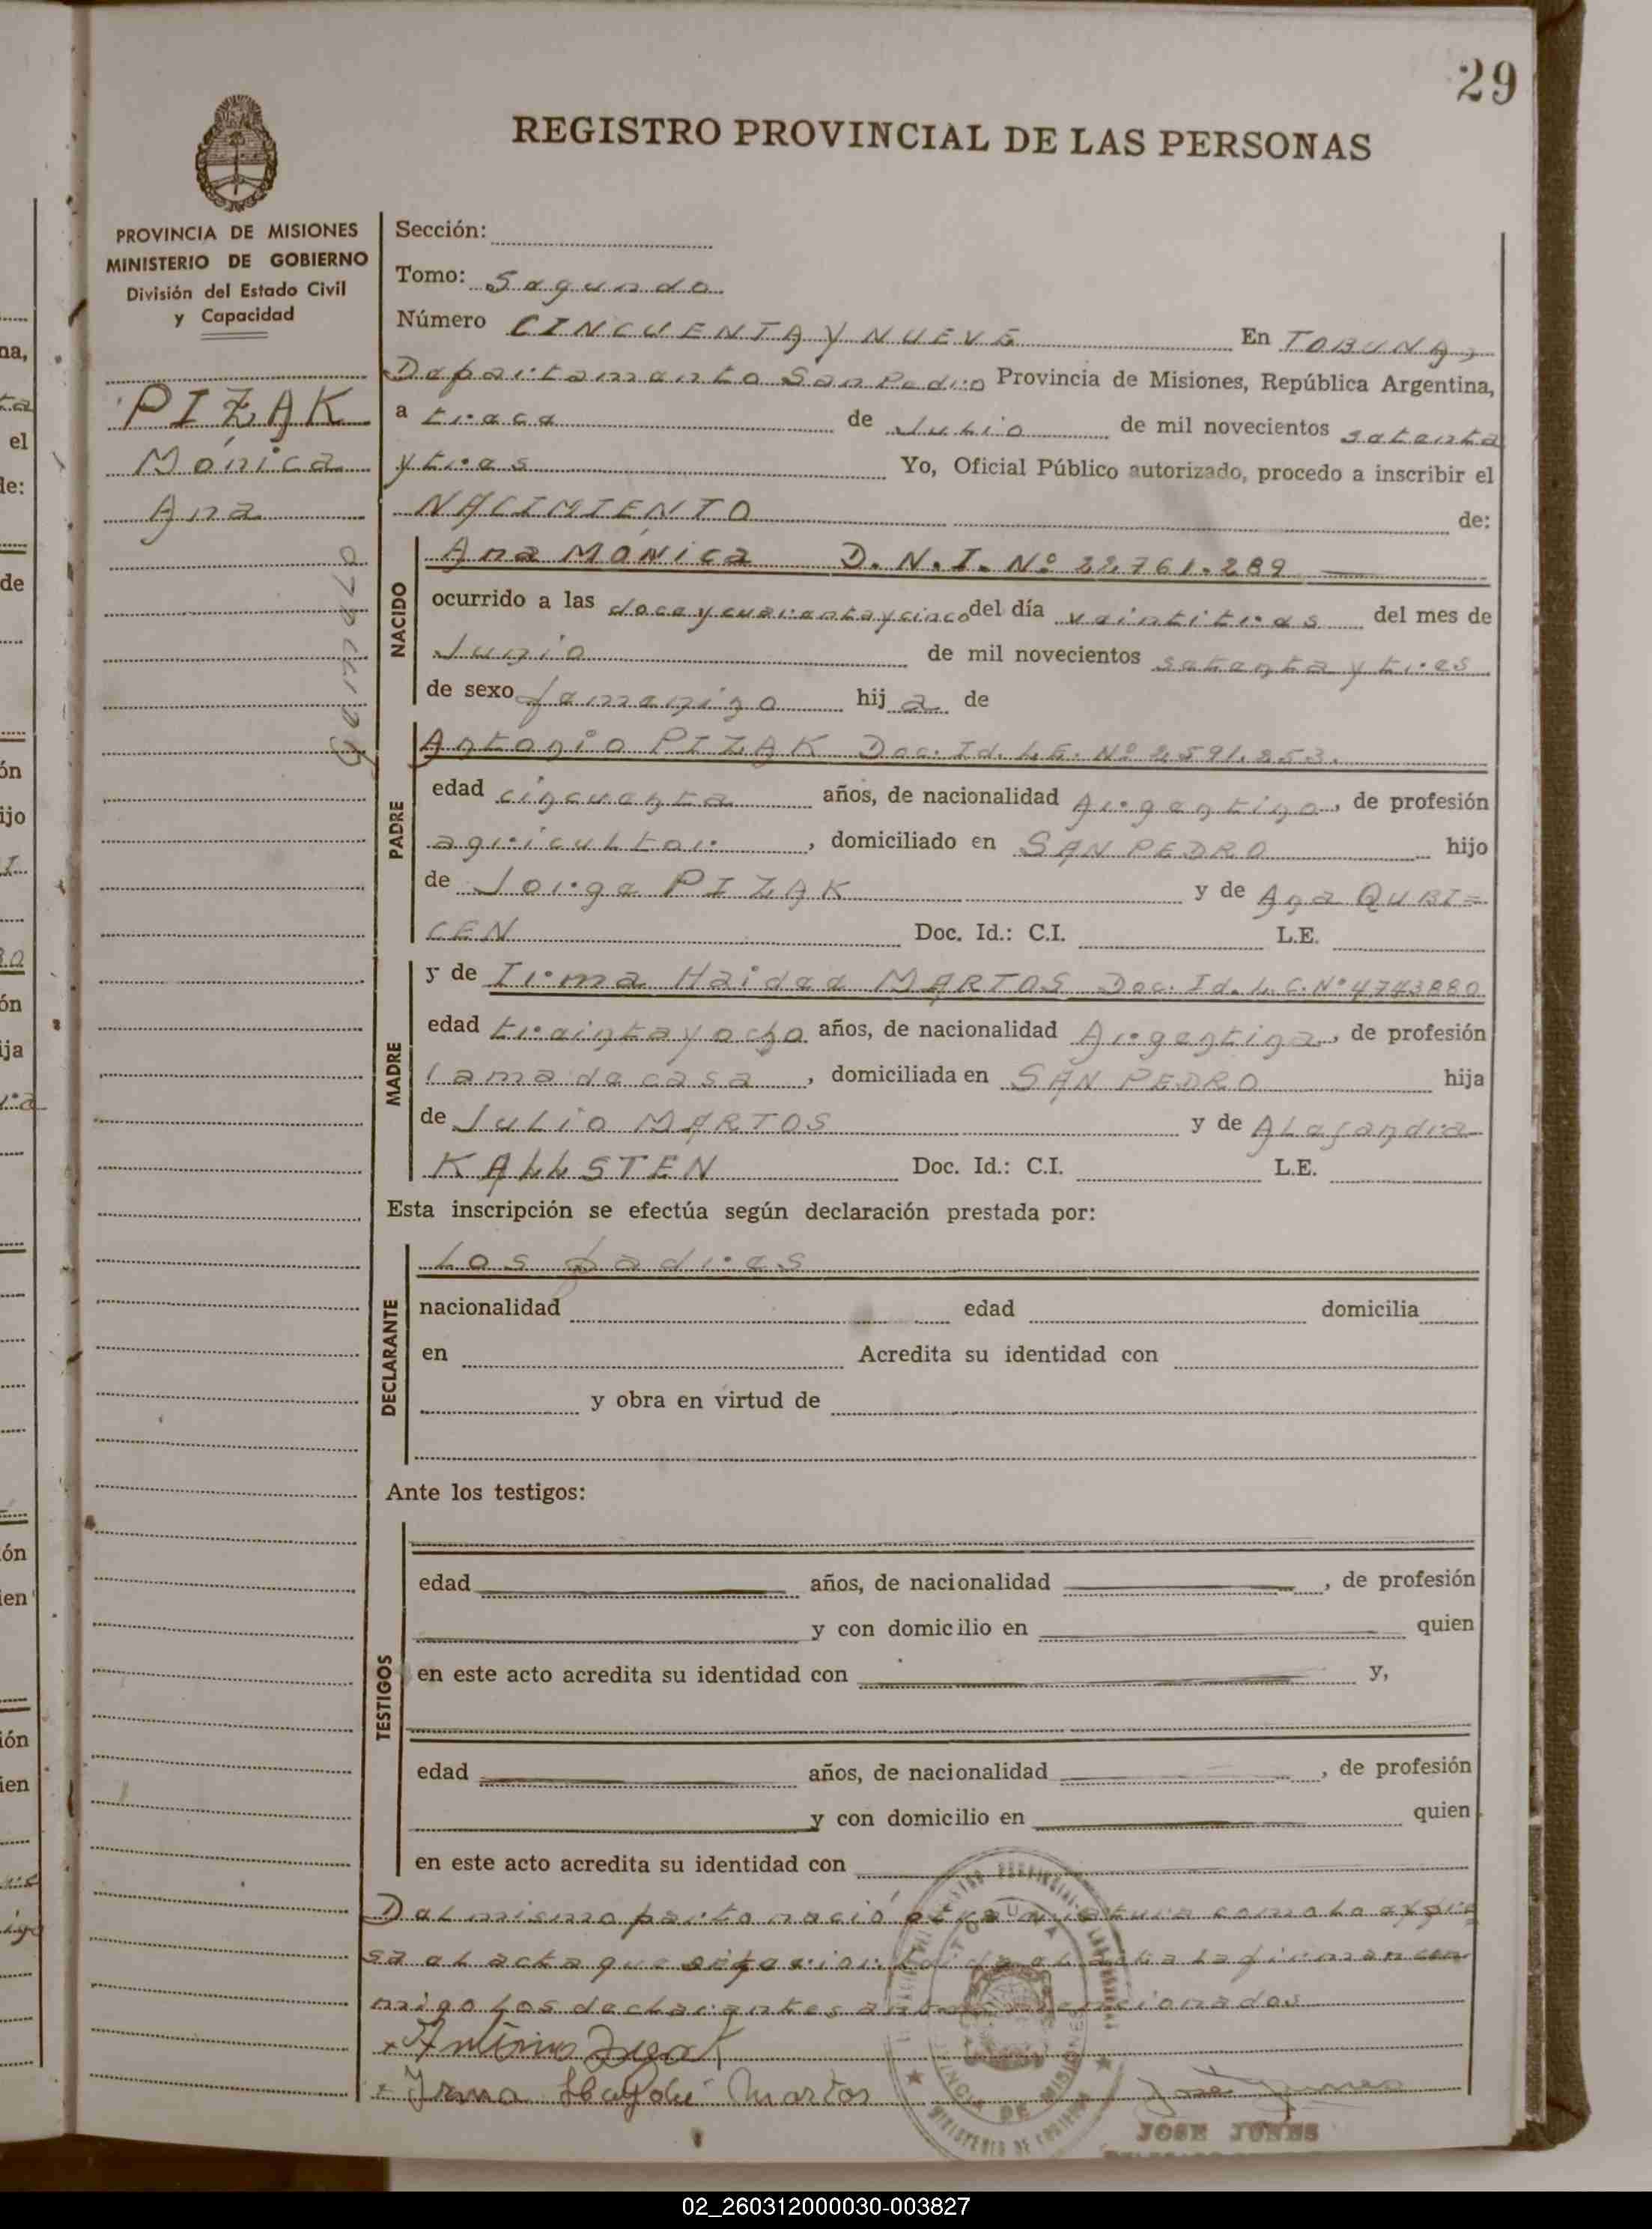 29
REGISTRO PROVINCIAL DE LAS PERSONAS
PROVINCIA DE MISIONES
MINISTERIO DE GOBIERNO
División del Estado Civil
y Capacidad
PIZAK
Mónica
Ana
Sección:
Tomo: Segundo
Número CINCUENTA Y NUEVE En TOBUNA,
Departamento San Pedro Provincia de Misiones, República Argentina,
a trece de Julio de mil novecientos setenta
y tres Yo, Oficial Público autorizado, procedo a inscribir el
NACIMIENTO de:
NACIDO
Ana MÓNICA D.N.I. Nº 22.761.289
ocurrido a las doce y cuarenta y cinco del día veintitres del mes de
Junio de mil novecientos setenta y tres
de sexo femenino hij a de
PADRE
Antonio PIZAK Doc. Id. L.E. Nº 2.591.353.
edad cincuenta años, de nacionalidad Argentino, de profesión
agricultor, domiciliado en SAN PEDRO hijo
de Jorge PIZAK y de Ana QUBI=
CEN Doc. Id.: C.I. L.E.
MADRE
y de Irma Haidee MARTOS Doc. Id. L.C. Nº 4743880
edad treinta y ocho años, de nacionalidad Argentina, de profesión
ama de casa, domiciliada en SAN PEDRO hija
de Julio MARTOS y de Alejandra
KALLSTEN Doc. Id.: C.I. L.E.
Esta inscripción se efectúa según declaración prestada por:
DECLARANTE
Los padres
nacionalidad edad domicilia
en Acredita su identidad con
y obra en virtud de
Ante los testigos:
TESTIGOS
edad años, de nacionalidad , de profesión
y con domicilio en quien
en este acto acredita su identidad con y,
edad años, de nacionalidad , de profesión
y con domicilio en quien
en este acto acredita su identidad con
Del mismo parto nació otra criatura como lo expre
sa el acta que Leida el acta la firman con
migo los declarantes antes mencionados
x Antonio Pizak
x Irma Haydeé Martos
JOSE JUNES
02_260312000030-003827